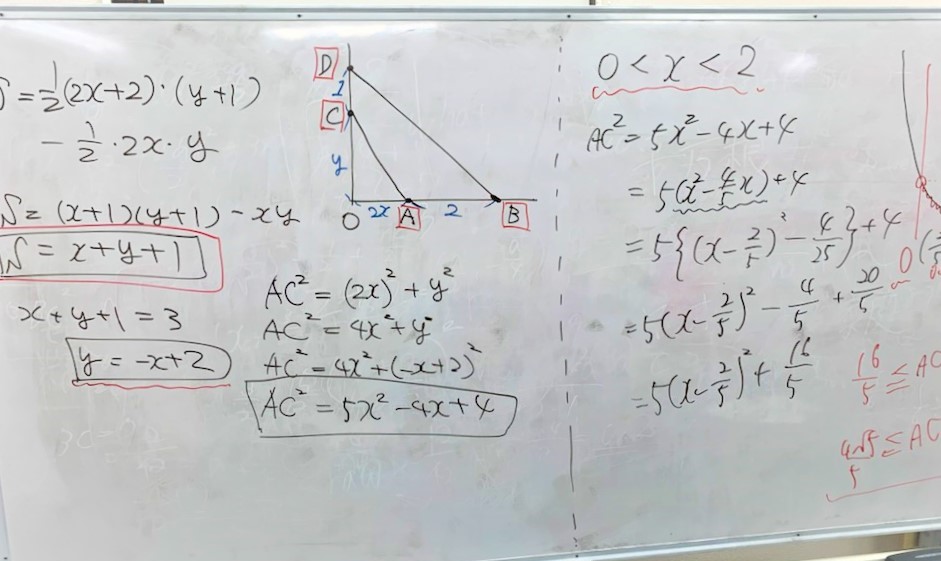 S = 1/2(2x+2)·(y+1)
- 1/2·2x·y
S = (x+1)(y+1) - xy
S = x+y+1
x+y+1 = 3
y = -x+2
D
1
C
y
O 2x A 2 B
AC² = (2x)² + y²
AC² = 4x² + y²
AC² = 4x² + (-x+2)²
AC² = 5x² - 4x + 4
0 < x < 2
AC² = 5x² - 4x + 4
= 5(x² - 4/5 x) + 4
= 5{(x - 2/5)² - 4/25} + 4
= 5(x - 2/5)² - 4/5 + 20/5
= 5(x - 2/5)² + 16/5
0
16/5 ≤ AC
4√5/5 ≤ AC